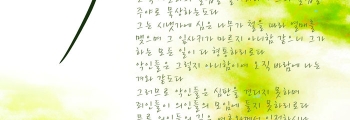 주야로 묵상하는도다
그는 시냇가에 심은 나무가 철을 따라 열매를
맺으며 그 잎사귀가 마르지 아니함 같으니 그가
하는 모든 일이 다 형통하리로다
악인들은 그렇지 아니함이여 오직 바람에 나는
겨와 같도다
그러므로 악인들은 심판을 견디지 못하며
죄인들이 의인들의 모임에 들지 못하리로다